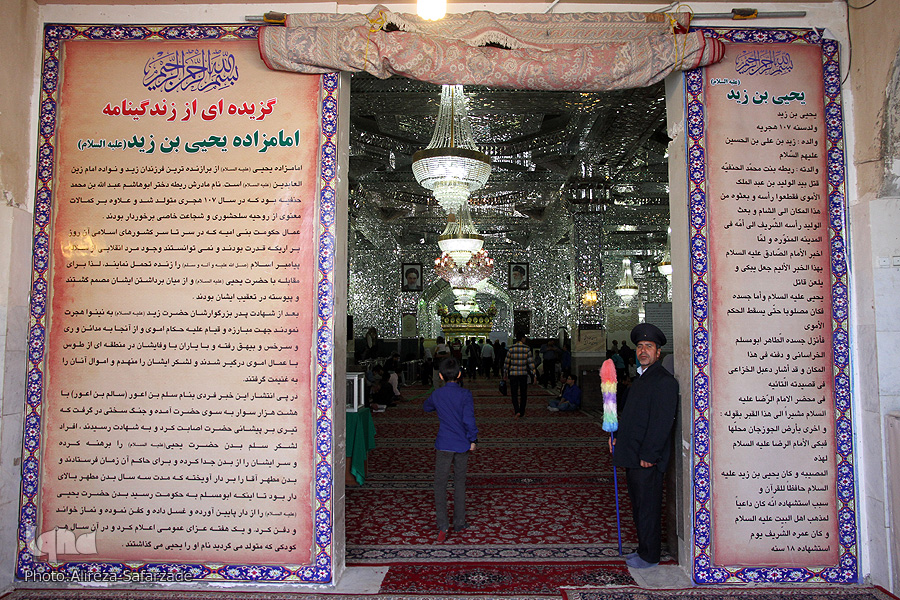 بسم الله الرحمن الرحیم
گزیده ای از زندگینامه
امامزاده یحیی بن زید (علیه السلام)
امامزاده یحیی (علیه السلام) از برازنده ترین فرزندان زید و نواده امام زین
العابدین (علیه السلام) است. نام مادرش ریطه دختر ابوهاشم عبدالله بن محمد
حنفیه بود که در سال ۱۰۷ هجری متولد شد و علاوه بر کمالات
معنوی از روحیه سلحشوری و شجاعت خاصی برخوردار بودند.
عمال حکومت بنی امیه که در سر تا سر کشورهای اسلامی آن روز
بر اریکه قدرت بودند و نمی توانستند وجود مرد انقلابی
پیامبر اسلام (صل الله علیه و آله و سلم) را زنده تحمل نمایند. لذا برای
مقابله با حضرت یحیی (علیه السلام) و از میان برداشتن ایشان مصمم گشتند
و پیوسته در تعقیب ایشان بودند.
بعد از شهادت پدر بزرگوارشان حضرت زید (علیه السلام) به نینوا هجرت
نمودند جهت مبارزه و قیام علیه حکام اموی و از آنجا به مدائن و ری
و سرخس و بیهق رفته و با یاران با وفایشان در منطقه ای از طوس
با عمال اموی درگیر شدند و لشکر ایشان را منهدم و اموال آنان را
به غنیمت گرفتند.
در پی انتشار این خبر فردی بنام سلم بن اعور (سالم بن اعور) با
هشت هزار سوار به سوی حضرت آمده و جنگ سختی در گرفت که
تیری بر پیشانی حضرت اصابت کرد و به شهادت رسیدند. افراد
لشکر سلم بدن حضرت یحیی (علیه السلام) را برهنه کرده
و سر ایشان را از بدن جدا کرده و برای حاکم آن زمان فرستادند و
بدن مطهر آقا را بر دار آویخته که مدت سه سال بدن مطهر بالای
دار بود تا اینکه ابومسلم به حکومت رسید بدن حضرت یحیی
(علیه السلام) را از دار پایین آورده و غسل داده و کفن نموده و نماز خواند
و دفن کرد. و یک هفته عزای عمومی اعلام کرد و در آن سال هر
کودکی که متولد می گردید نام او را یحیی می گذاشتند.
بسم الله الرحمن الرحیم
یحیی بن زید (علیه السلام)
یحیی بن زید
ولدسنه ۱۰۷ هجریه
والده : زید بن علی بن الحسین
علیهم السّلام
والدته : ریطه بنت محمّد الحنفیّه
قتل بید الولید بن عبد الملک
الأموی فقطعوا رأسه و بعثوه من
هذا المکان الی الشام و بعث
الولید رأسه الشّریف الی أمّه فی
المدینه المنوّره و لمّا
اخبر الأمام الصّادق علیه السلام
بهذا الخبر الألیم جعل یبکی و
یلعن قاتل
یحیی علیه السلام و أما جسده
فکان مصلوبا حتی یسقط الحکم
الأموی
فأنزل جسده الطاهر ابومسلم
الخراسانی و دفنه فی هذا
المکان و قد أشار دعبل الخزاعی
فی قصیدته التائیه
فی محضر الامام الرّضا علیه
السلام مشیراً الی هذا القبر بقوله :
و اخری بأرض الجوزجان محلّها
فبکی الأمام الرضا علیه السلام
لهذه
المصیبه و کان یحیی بن زید علیه
السلام حافظاً للقرآن و
سبب استشهاده انّه کان داعیاً
لمذهب اهل البیت علیه السلام
و کان عمره الشریف یوم
استشهاده ۱۸ سنه
iqna
Photo: Alireza Safarzade